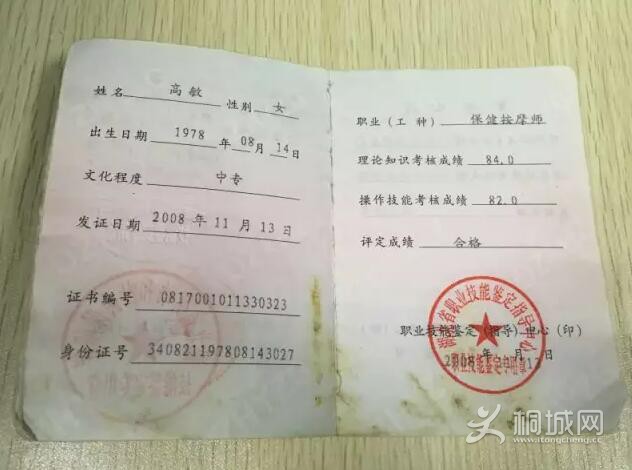 姓名 高敏 性别 女
出生日期 1978 年 08 月 14 日
文化程度 中专
发证日期 2008 年 11 月 13 日
证书编号 0817001011330323
身份证号 340821197808143027
职业（工 种） 保健按摩师
理论知识考核成绩 84.0
操作技能考核成绩 82.0
评定成绩 合格
省职业技能鉴定指导中心
职业技能鉴定（指导）中心（印）
2008 年 月 12 日
职业技能鉴定专用章
桐城网
www.itongcheng.cc